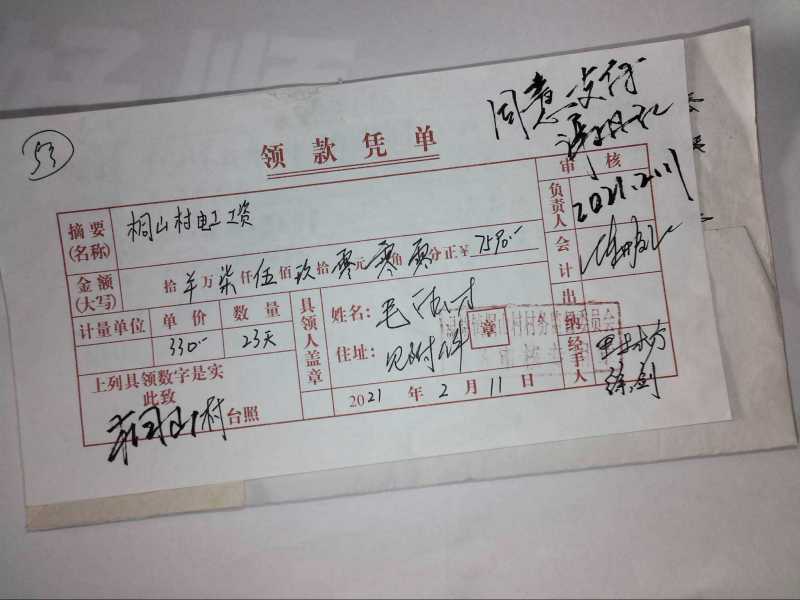 53
同意支付
2021.2.11
领款凭单
审核
摘要(名称) 桐山村电工工资
负责人
金额(大写) 拾 羊 万 柒 仟 伍 佰 玖 拾 零 元 零 角 零 分正 ¥ 7590.-
会计
计量单位 单价 数量
330.- 23天
具领人盖章
姓名: 毛
住址: 见附件
章
出纳
经手人
徐剑
上列具领数字是实
此致
桐山村 台照
2021 年 2 月 11 日